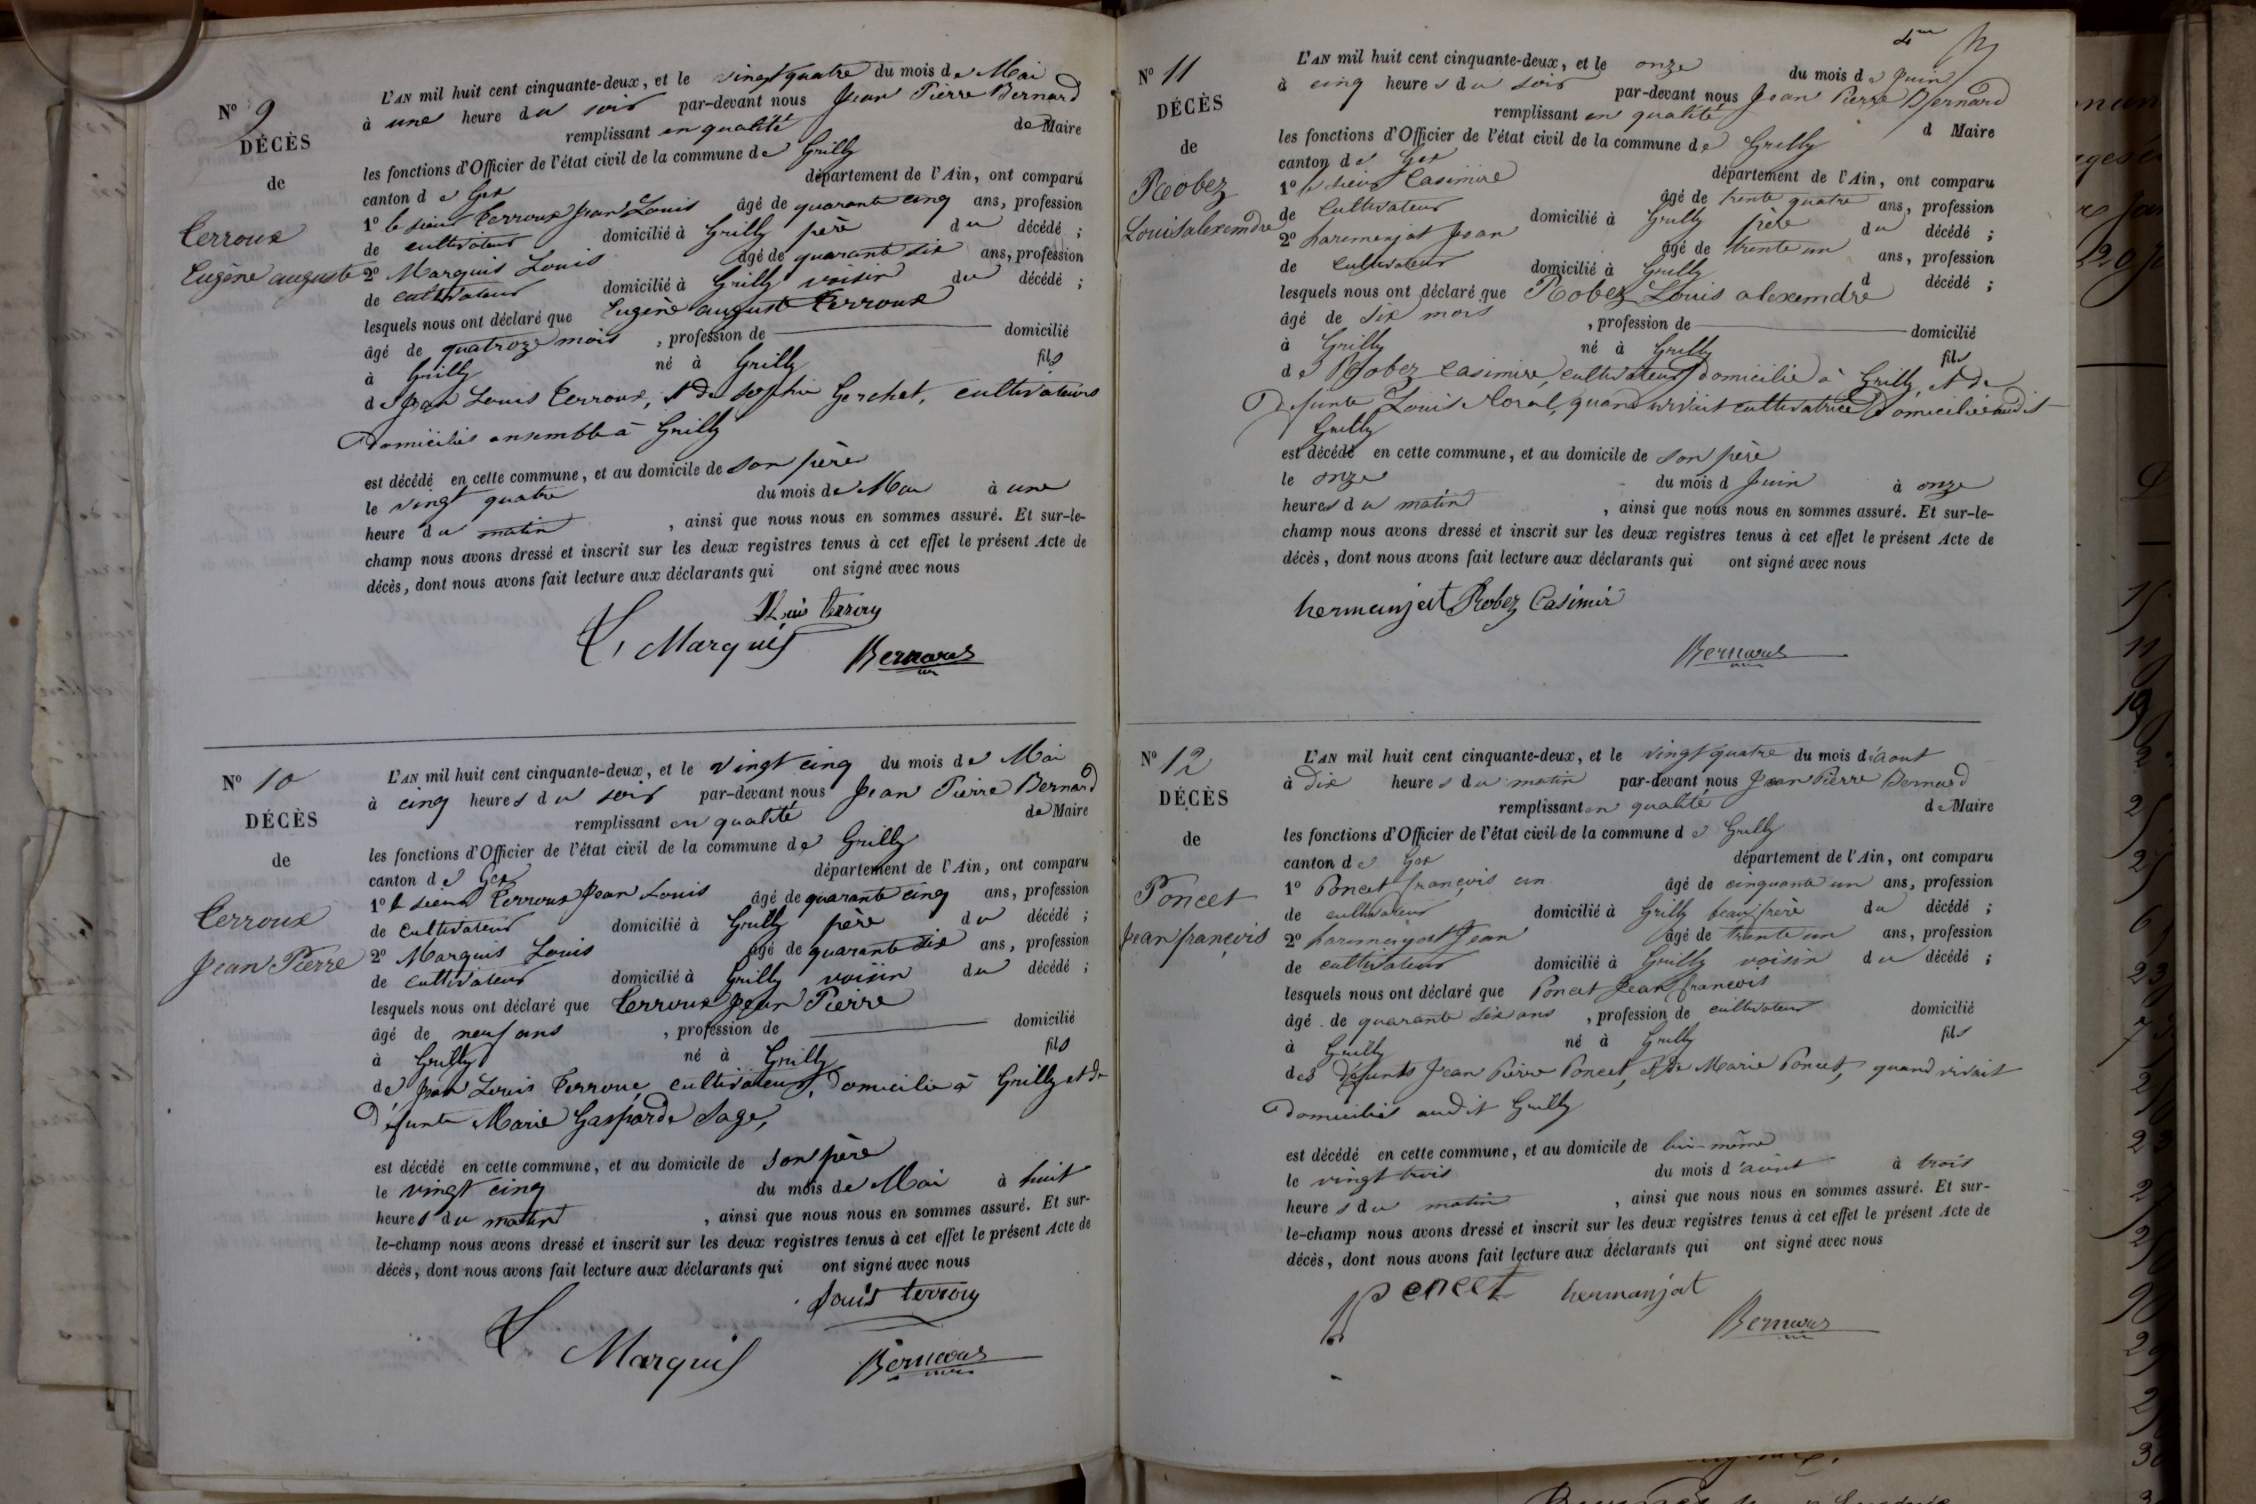 N° 9
DÉCÈS
de
Terroux
Eugène auguste
L'AN mil huit cent cinquante-deux, et le vingt quatre du mois de Mai
à une heure du soir par-devant nous Jean Pierre Bernard
remplissant en qualité de Maire
les fonctions d'Officier de l'état civil de la commune de Grilly
canton de Gex département de l'Ain, ont comparu
1° le sieur Terroux Jean Louis âgé de quarante cinq ans, profession
de cultivateur domicilié à Grilly père du décédé ;
2° Marquis Louis âgé de quarante six ans, profession
de cultivateur domicilié à Grilly voisin du décédé ;
lesquels nous ont déclaré que Eugène auguste Terroux
âgé de quatroze mois , profession de domicilié
à Grilly né à Grilly fils
de Jean Louis Terroux, et de sophie Gerchet, cultivateurs
Domiciliés ensemble à Grilly
est décédé en cette commune, et au domicile de son père
le vingt quatre du mois de Mai à une
heure du matin , ainsi que nous nous en sommes assuré. Et sur-le-
champ nous avons dressé et inscrit sur les deux registres tenus à cet effet le présent Acte de
décès, dont nous avons fait lecture aux déclarants qui ont signé avec nous
Louis terroux
L, Marquis Bernard
N° 10
DÉCÈS
de
Terroux
Jean Pierre
L'AN mil huit cent cinquante-deux, et le vingt cinq du mois de Mai
à cinq heures du soir par-devant nous Jean Pierre Bernard
remplissant en qualité de Maire
les fonctions d'Officier de l'état civil de la commune de Grilly
canton de Gex département de l'Ain, ont comparu
1° le sieur Terroux Jean Louis âgé de quarante cinq ans, profession
de cultivateur domicilié à Grilly père du décédé ;
2° Marquis Louis âgé de quarante six ans, profession
de cultivateur domicilié à Grilly voisin du décédé ;
lesquels nous ont déclaré que Terroux Jean Pierre
âgé de neuf ans , profession de domicilié
à Grilly né à Grilly fils
de Jean Louis Terroux, cultivateur, domicilié à Grilly et de
Défunte Marie Gasparde Sage,
est décédé en cette commune, et au domicile de son père
le vingt cinq du mois de Mai à huit
heures du matin , ainsi que nous nous en sommes assuré. Et sur-
le-champ nous avons dressé et inscrit sur les deux registres tenus à cet effet le présent Acte de
décès, dont nous avons fait lecture aux déclarants qui ont signé avec nous
Louis terroux
L Marquis Bernard
N° 11
DÉCÈS
de
Robez
Louis alexemdre
L'AN mil huit cent cinquante-deux, et le onze du mois de Juin
à cinq heures du soir par-devant nous Jean Pierre Bernard
remplissant en qualité d Maire
les fonctions d'Officier de l'état civil de la commune de Grilly
canton de Gex département de l'Ain, ont comparu
1° le sieur Casimire âgé de trente quatre ans, profession
de Cultivateur domicilié à Grilly père du décédé ;
2° haremenjat Jean âgé de trente un ans, profession
de cultivateur domicilié à Grilly d décédé ;
lesquels nous ont déclaré que Robez Louis alexemdre
âgé de six mois , profession de domicilié
à Grilly né à Grilly fils
de Robez Casimire, cultivateur, domicilié à Grilly, et de
Defunte Louis Moral, quand vivait cultivatrice Domiciliée audit
Grilly
est décédé en cette commune, et au domicile de son père
le onze du mois d Juin à onze
heures du matin , ainsi que nous nous en sommes assuré. Et sur-le-
champ nous avons dressé et inscrit sur les deux registres tenus à cet effet le présent Acte de
décès, dont nous avons fait lecture aux déclarants qui ont signé avec nous
hermanjat Robez Casimir
Bernard
N° 12
DÉCÈS
de
Poncet
Jean françois
L'AN mil huit cent cinquante-deux, et le vingt quatre du mois d'aout
à Dix heures du matin par-devant nous Jean Pierre Bernard
remplissant en qualité de Maire
les fonctions d'Officier de l'état civil de la commune de Grilly
canton de Gex département de l'Ain, ont comparu
1° Poncet françois âgé de cinquante un ans, profession
de cultivateur domicilié à Grilly beau frère du décédé ;
2° haremenjat Jean âgé de trente un ans, profession
de cultivateur domicilié à Grilly voisin du décédé ;
lesquels nous ont déclaré que Poncet Jean françois
âgé de quarante six ans , profession de cultivateur domicilié
à Grilly né à Grilly fils
des défunts Jean Pierre Poncet, et de Marie Poncet, quand vivait
Domiciliés audit Grilly
est décédé en cette commune, et au domicile de lui-même
le vingt trois du mois d'aout à trois
heures du matin , ainsi que nous nous en sommes assuré. Et sur-
le-champ nous avons dressé et inscrit sur les deux registres tenus à cet effet le présent Acte de
décès, dont nous avons fait lecture aux déclarants qui ont signé avec nous
Poncet hermanjat
Bernard